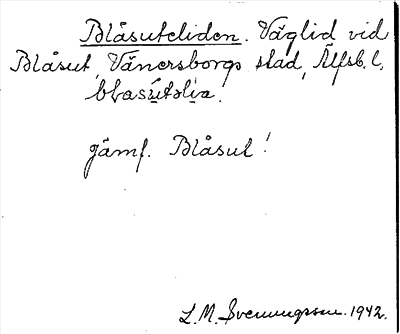 Blåsuteliden. Väglid vid
Blåsut, Vänersborgs stad, Älfsb. l.
blasútslìa.
jämf. Blåsut!
L. M. Svenungsson. 1942.